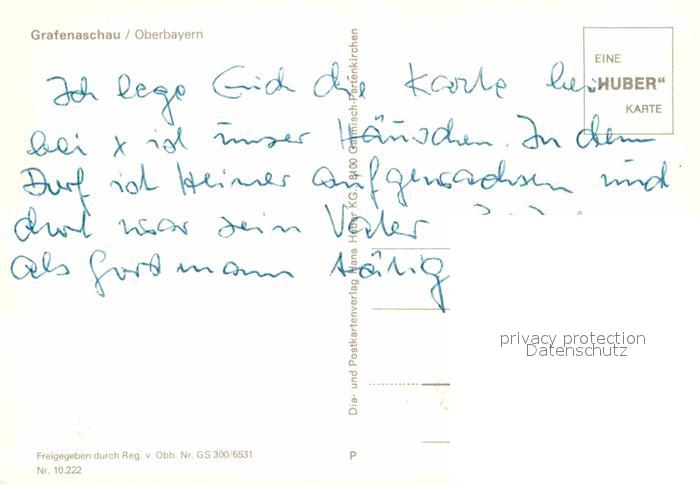 Grafenaschau / Oberbayern
EINE
"HUBER"
KARTE
Ich lege Euch die Karte bei
bei x ist unser Häuschen. In dem
Dorf ist Heiner aufgewachsen und
dort war sein Vater
als Forstmann tätig
Dia- und Postkartenverlag Hans Huber KG, 8100 Garmisch-Partenkirchen
privacy protection
Datenschutz
Freigegeben durch Reg. v. Obb. Nr. GS 300/6531
Nr. 10.222
P